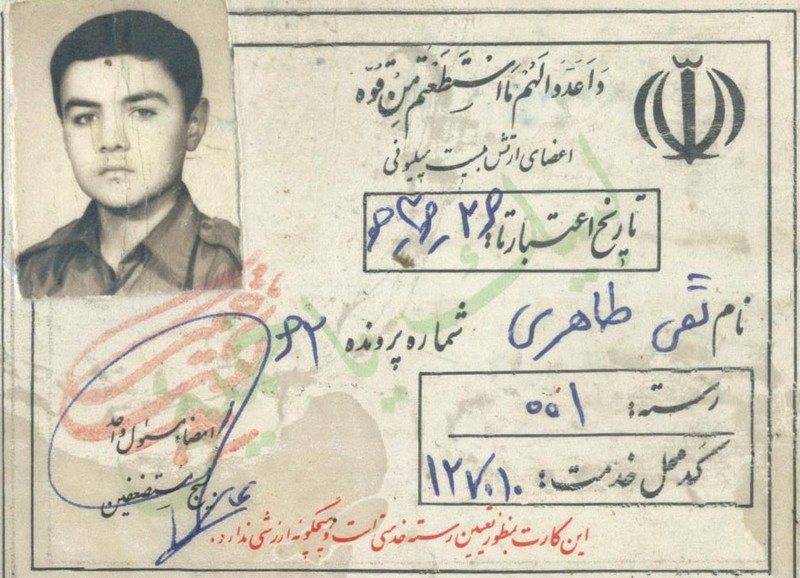 وَاَعِدّوا لَهُم مَا اسْتَطَعْتُم مِن قُوّه
اعضای ارتش بیست میلیونی
تاریخ اعتبار تا:
نام تقی طاهری شماره پرونده ۶۲
رسته:
کد محل خدمت: ۱۲۷۰۱۰
امضاء مسئول واحد
بسیج مستضعفین
این کارت بمنظور تعیین رسته خدمتی است و هیچگونه ارزشی ندارد.